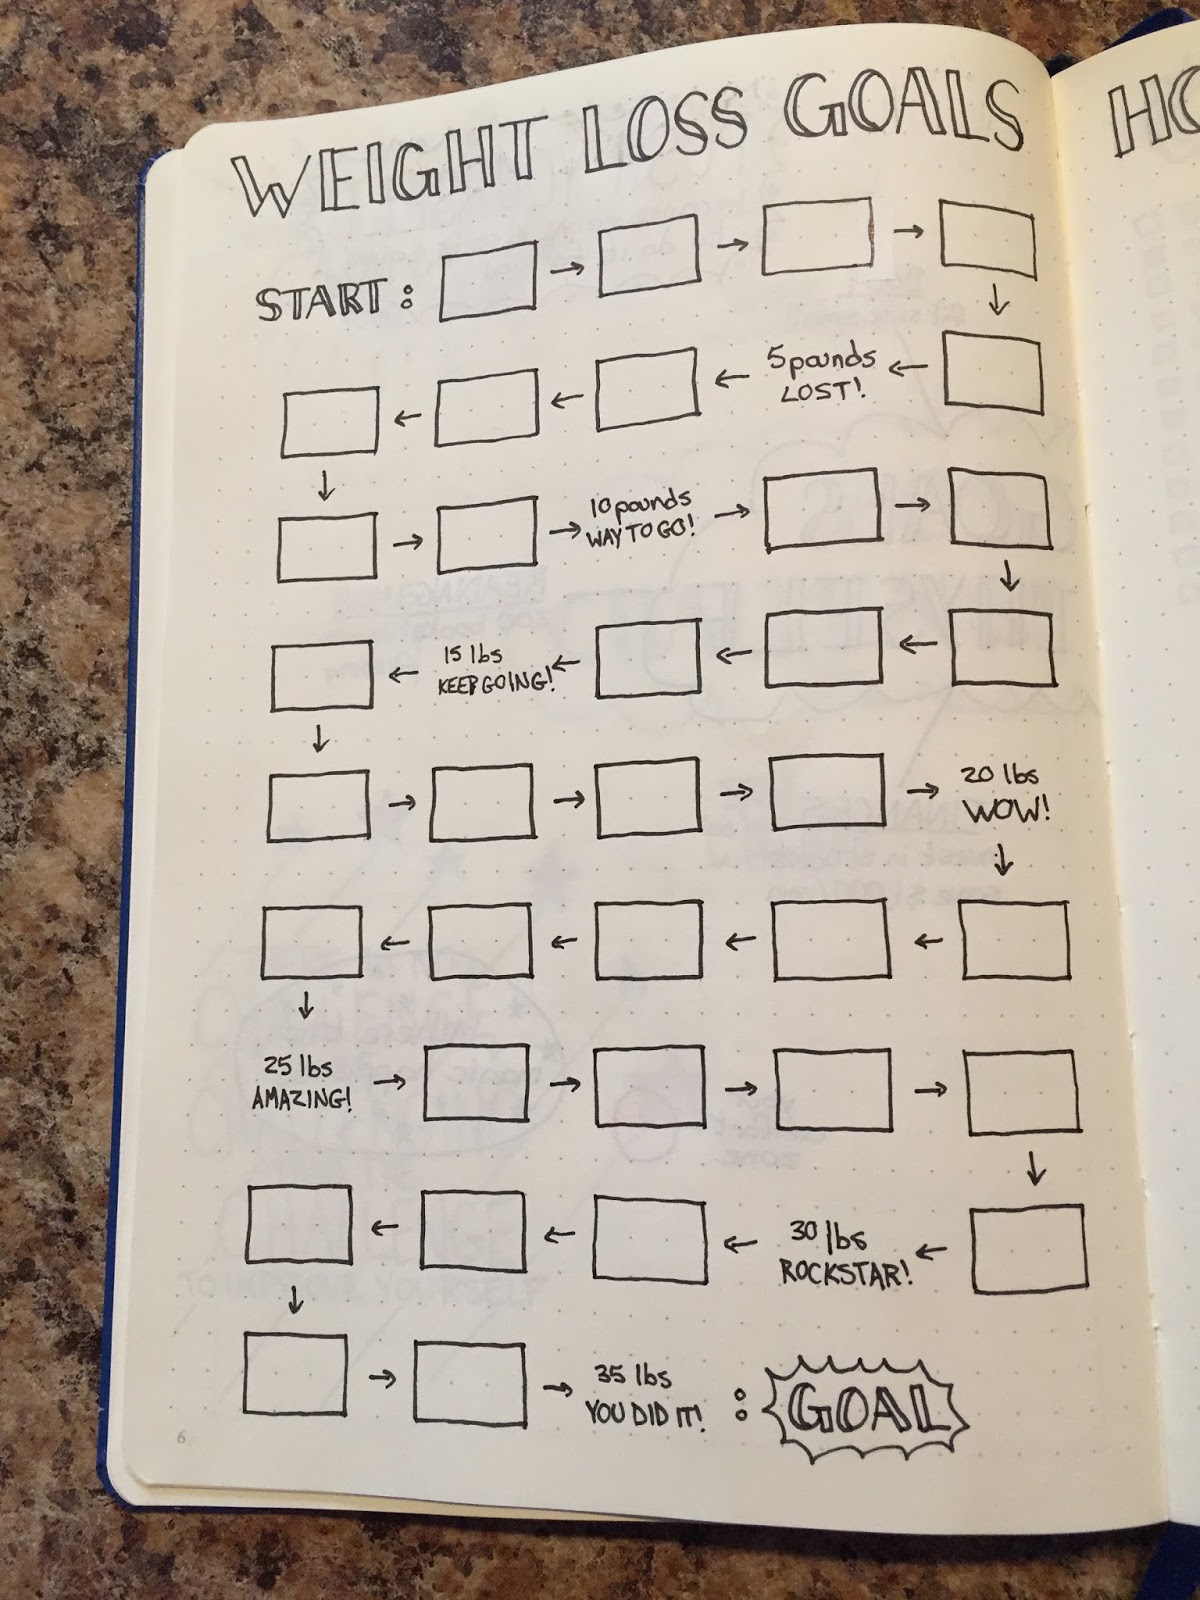 WEIGHT LOSS GOALS
HO
START :
5 pounds
LOST!
10 pounds
WAY TO GO!
15 lbs
KEEP GOING!
20 lbs
WOW!
25 lbs
AMAZING!
30 lbs
ROCKSTAR!
35 lbs
YOU DID IT! : GOAL
6